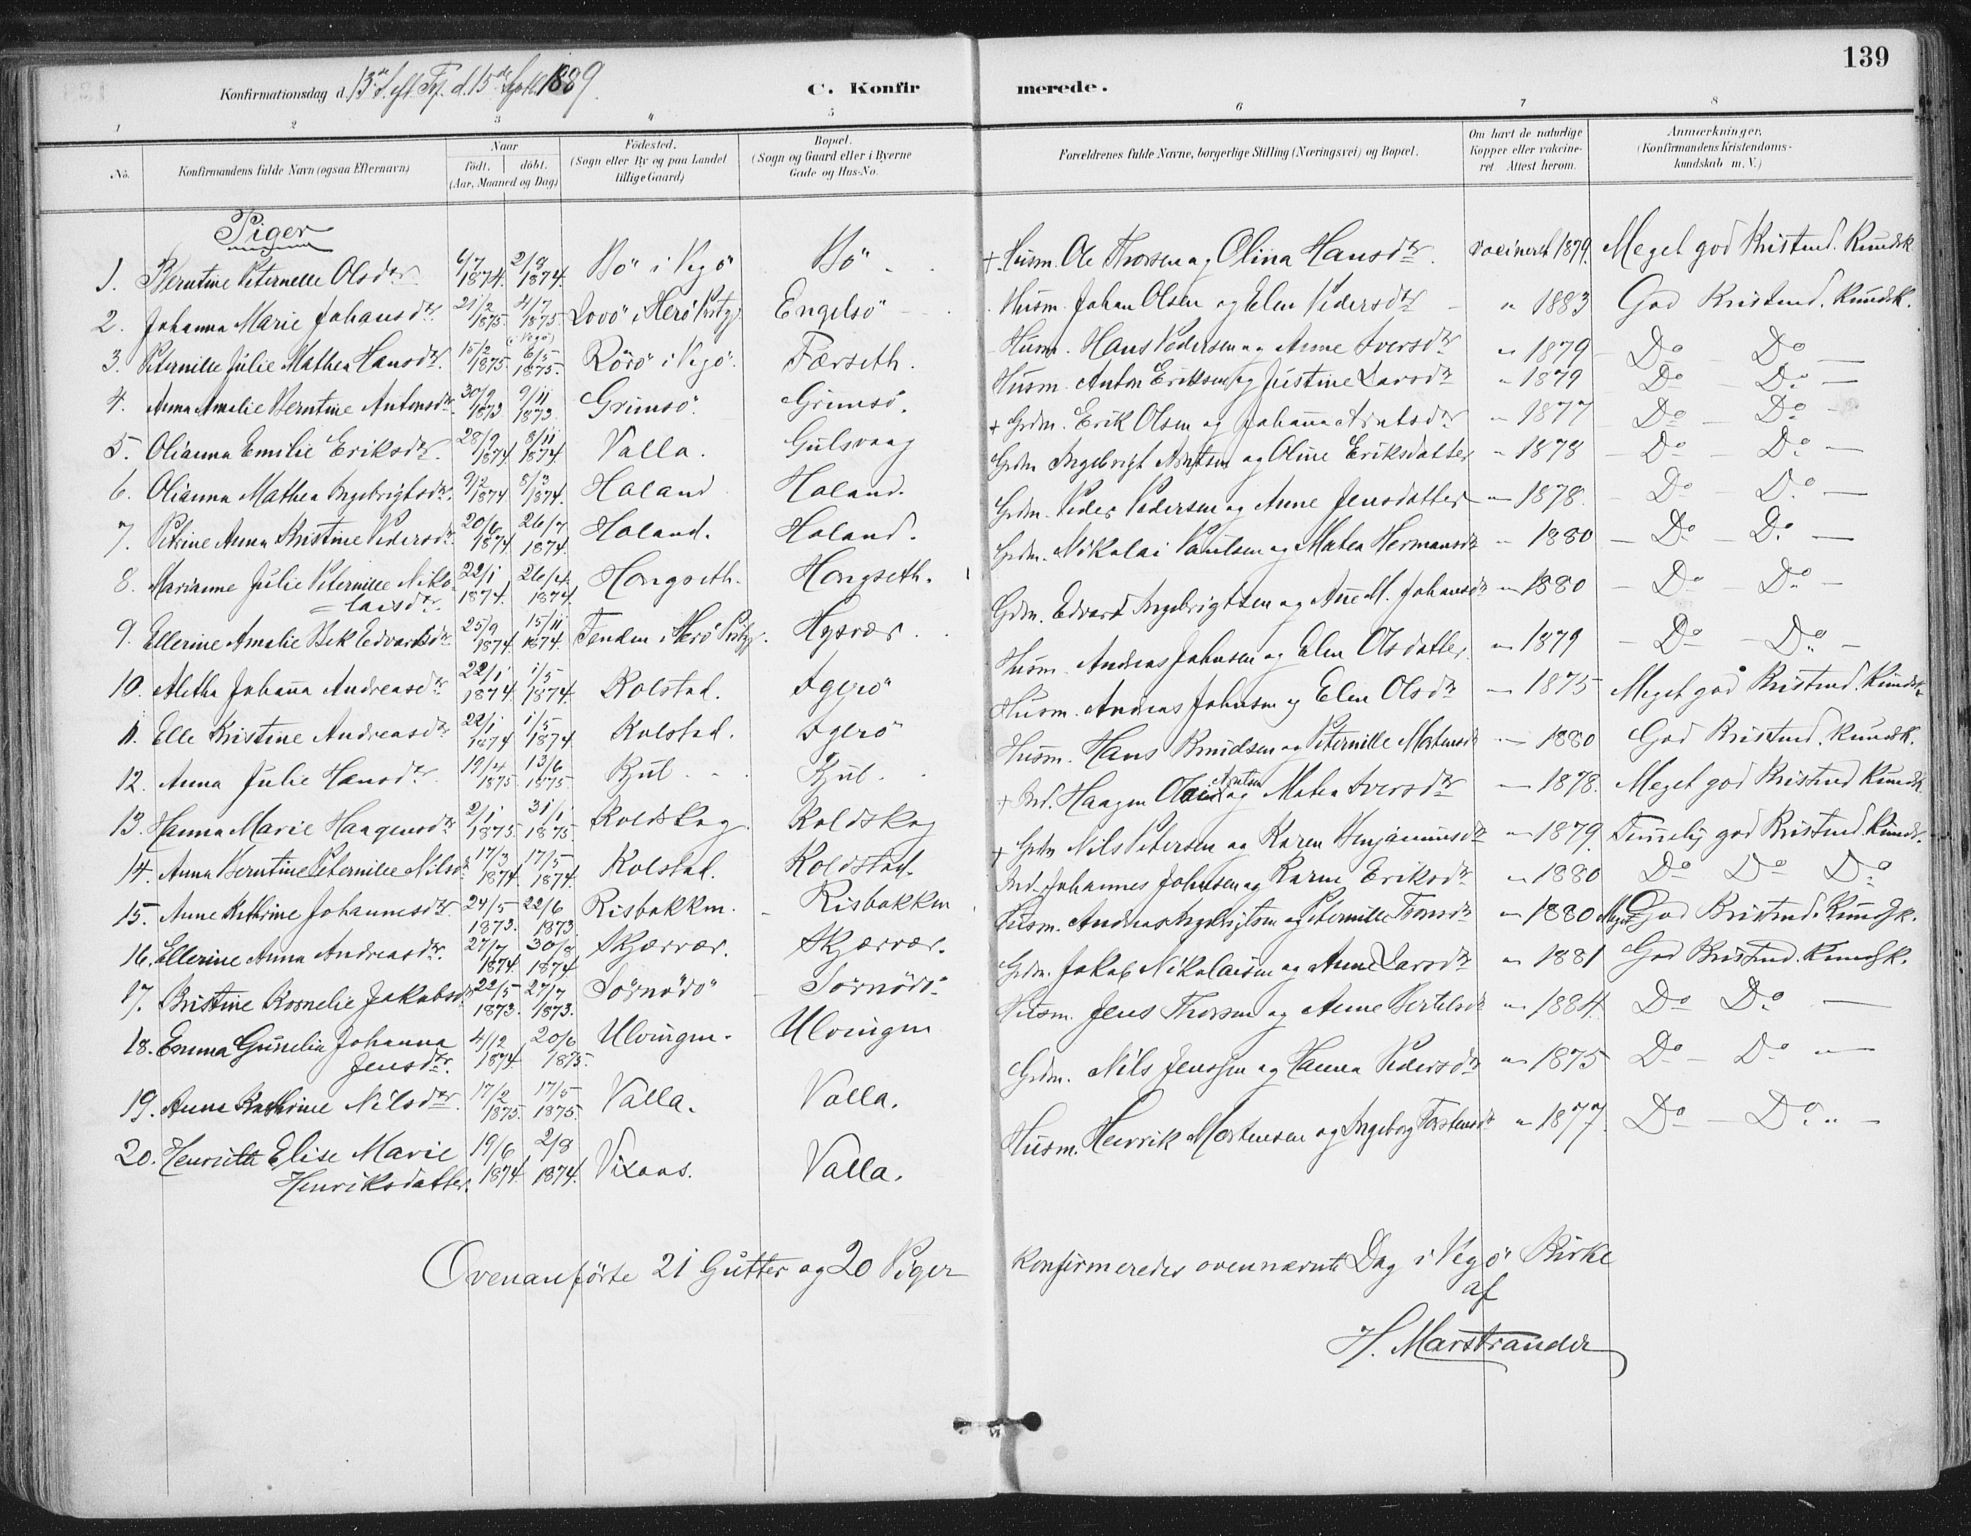 139
Konfirmationsdag d. 13de S. eft. Trf. d. 15de Septbr 1889.
C. Konfir merede.
1 2 3 4 5 6 7 8
No.
Konfirmandens fulde Navn (ogsaa Efternavn)
Naar
født. døbt.
(Aar, Maaned og Dag)
Fødested.
(Sogn eller By og paa Landet
tillige Gaard)
Bopæl.
(Sogn og Gaard eller i Byerne
Gade og Hus-No.
Forældrenes fulde Navne, borgerlige Stilling (Næringsvei) og Bopæl.
Om havt de naturlige
Kopper eller vakcine-
ret Attest herom.
Anmærkninger.
(Konfirmandens Kristendoms-
kundskab m. V.)
Piger
1. Berntine Peternelle Olsdtr. 6/7 1874. 2/8 1874. Bö i Vegö Bö + Husm. Ole Thorsen og Olina Hansdtr. vacineret 1879. Meget god Kristend. Kundsk.
2. Johanna Marie Johansdtr. 21/2 1875. 4/7 1875. (i Vegö) Lovö i Herö Prstgj. Engelsö Husm. Johan Olsen og Elen Pedersdtr " 1883 God Kristend. Kundsk.
3. Peternille Julie Mathea Hansdtr. 15/2 1875 6/5 1875. Rörö i Vegö. Færseth. Husm. Hans Pedersen og Anne Iversdtr " 1879 Do Do
4. Anna Amalie Berntine Antonsdtr. 30/9 1873 9/11 1873. Grimsö. Grimsö. Husm. Anton Eriksen og Justine Larsdtr " 1879 Do Do
5. Olianna Emilie Eriksdtr. 28/9 1874. 8/11 1874. Valla. Gulsvaag + Grdm. Erik Olsen og Johanna Arntsdtr " 1877 Do Do
6. Olianna Mathea Ingebrigtsdtr. 9/2 1874 8/3 1874. Holand Holand. Grdm. Ingebrigt Arntsen og Oline Eriksdatter " 1878 Do Do
7. Petrine Anna Kristine Pedersdtr. 20/6 1874 26/7 1874. Holand. Holand. Grdm. Peder Pedersen og Anne Jensdatter " 1878. Do Do
8. Marianne Julie Peternille Niko=laisdtr. 22/1 1874. 26/4 1874. Hongseth. Hongseth. Grdm. Nikolai Paulsen og Matea Hermansdtr " 1880 Do Do
9. Ellerine Amalie Bek Edvardsdtr 25/9 1874 15/11 1874. Tenden i Herö Prstgj. Hysvær Grdm. Edvard Ingebrigtsen og Ane M. Johansdtr " 1880 Do Do
10. Aletha Johanna Andreasdtr 22/1 1874. 1/5 1874. Kolstad. Igerö Husm. Andreas Johnsen og Elen Olsdatter " 1879 Do Do
11. Elle Kristine Andreasdtr. 22/1 1874 1/5 1874 Kolstad. Igerö Husm. Andreas Johnsen og Elen Olsdtr " 1875 Meget god Kristend. Kundsk.
12. Anna Julie Hansdtr. 19/4 1875 13/6 1875 Kjul. Kjul. Husm. Hans Knudsen og Peternille Mortensdtr " 1880 God Kristend. Kundsk.
13. Hanna Marie Haagensdtr 2/1 1875. 31/1 1875. Koldskog. Koldskog + Ind. Haagen Arntsen og Matea Iversdtr " 1878. Meget god Kristend Kundsk.
14. Anna Berntine Peternille Nilsdtr 17/3 1874. 17/5 1874. Kolstad. Koldstad. + Grdm Nils Petersen og Karen Benjaminsdtr " 1879. Temmelig god Kristend. Kundsk.
15. Anne Kathrine Johannesdtr. 24/5 1873. 22/6 1873 Risbakken. Risbakken Ind. Johannes Johnsen og Karen Eriksdtr " 1880 Do Do Do
16. Ellerine Anna Andreasdtr. 27/7 1874 30/8 1874 Skjærvær. Skjærvær. Husm. Andreas Ingebrigtsen og Peternille Tomasdtr " 1880 Meget God Kristend. Kundsk.
17. Kristine Kornelie Jakobsdtr 22/5 1873. 27/7 1873. Sörnödö Sörnödö. Grdm. Jakob Nikolaisen og Anne Larsdtr " 1881 God Kristend. Kundsk.
18. Emma Gunelia Johanna Jensdtr. 4/12 1874 20/6 1875. Ulvingen. Ulvingen Husm. Jens Thorsen og Anne Bertelsdtr " 1884. Do Do
19. Anne Kathrine Nilsdtr. 17/2 1875. 17/5 1875. Valla. Valla. Grdm. Nils Jenssen og Hanna Pedersdtr " 1875 Do Do
20. Henriette Elise Marie Henriksdatter. 19/6 1874. 2/8 1874. Vixaas. Valla. Husm. Henrik Mortensen og Ingeborg Torstensdtr " 1877. Do Do
Ovenanförte 21 Gutter og 20 Piger konfirmeredes ovennævnte Dag i Vegö Kirke
af
H. Marstrander